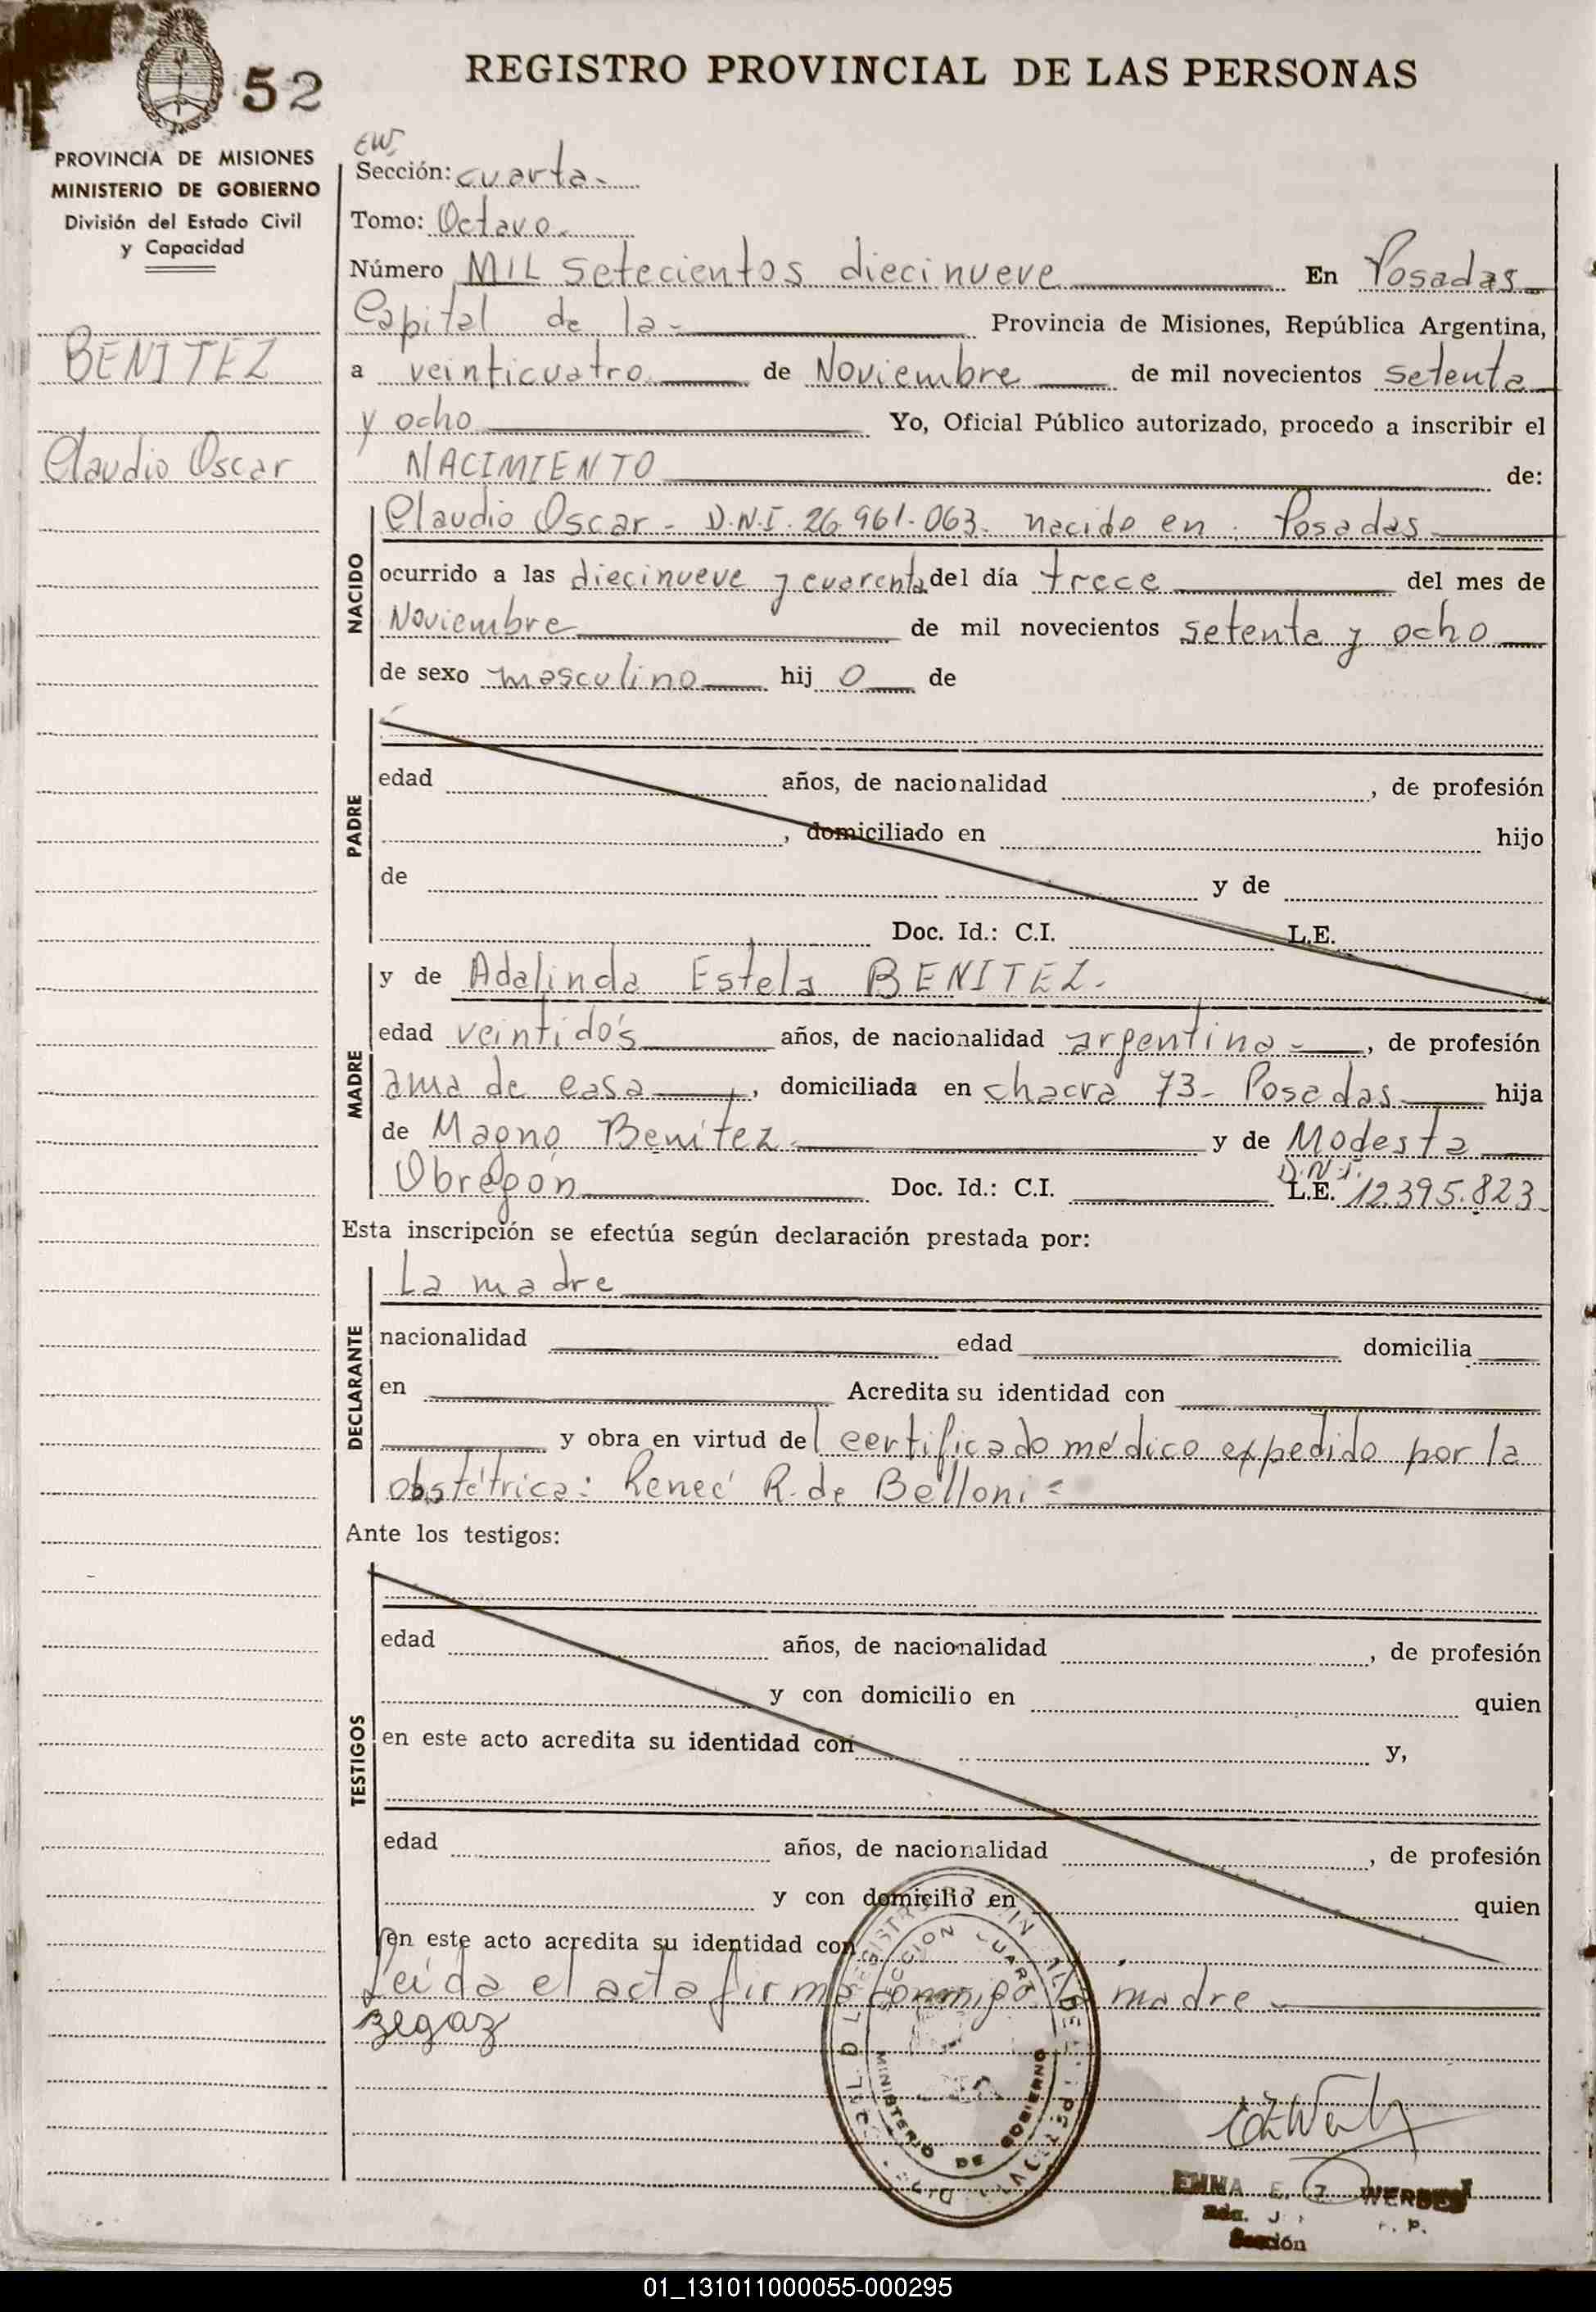 52
REGISTRO PROVINCIAL DE LAS PERSONAS
PROVINCIA DE MISIONES
MINISTERIO DE GOBIERNO
División del Estado Civil
y Capacidad
BENITEZ
Claudio Oscar
EW
Sección: cuarta.
Tomo: Octavo.
Número MIL setecientos diecinueve En Posadas
Capital de la- Provincia de Misiones, República Argentina,
a veinticuatro de Noviembre de mil novecientos setenta
y ocho Yo, Oficial Público autorizado, procedo a inscribir el
NACIMIENTO de:
NACIDO
Claudio Oscar - D.N.I. 26.961.063. nacido en: Posadas
ocurrido a las diecinueve y cuarenta del día trece del mes de
Noviembre de mil novecientos setenta y ocho
de sexo masculino hij o de
PADRE
edad años, de nacionalidad , de profesión
, domiciliado en hijo
de y de
Doc. Id.: C.I. L.E.
MADRE
y de Adalinda Estela BENITEZ.
edad veintidós años, de nacionalidad argentina- , de profesión
ama de casa , domiciliada en chacra 73- Posadas hija
de Magno Benítez. y de Modesta
Obregón Doc. Id.: C.I. D.N.I. L.E. 12.395.823
Esta inscripción se efectúa según declaración prestada por:
DECLARANTE
La madre
nacionalidad edad domicilia
en Acredita su identidad con
y obra en virtud del certificado médico expedido por la
obstétrica: Reneé R. de Belloni =
Ante los testigos:
TESTIGOS
edad años, de nacionalidad , de profesión
y con domicilio en quien
en este acto acredita su identidad con y,
edad años, de nacionalidad , de profesión
y con domicilio en quien
en este acto acredita su identidad con
Leída el acta firma conmigo la madre
SECCION CUARTA
MINISTERIO DE GOBIERNO
EMMA E. Z. WERBES
Sección
01_131011000055-000295